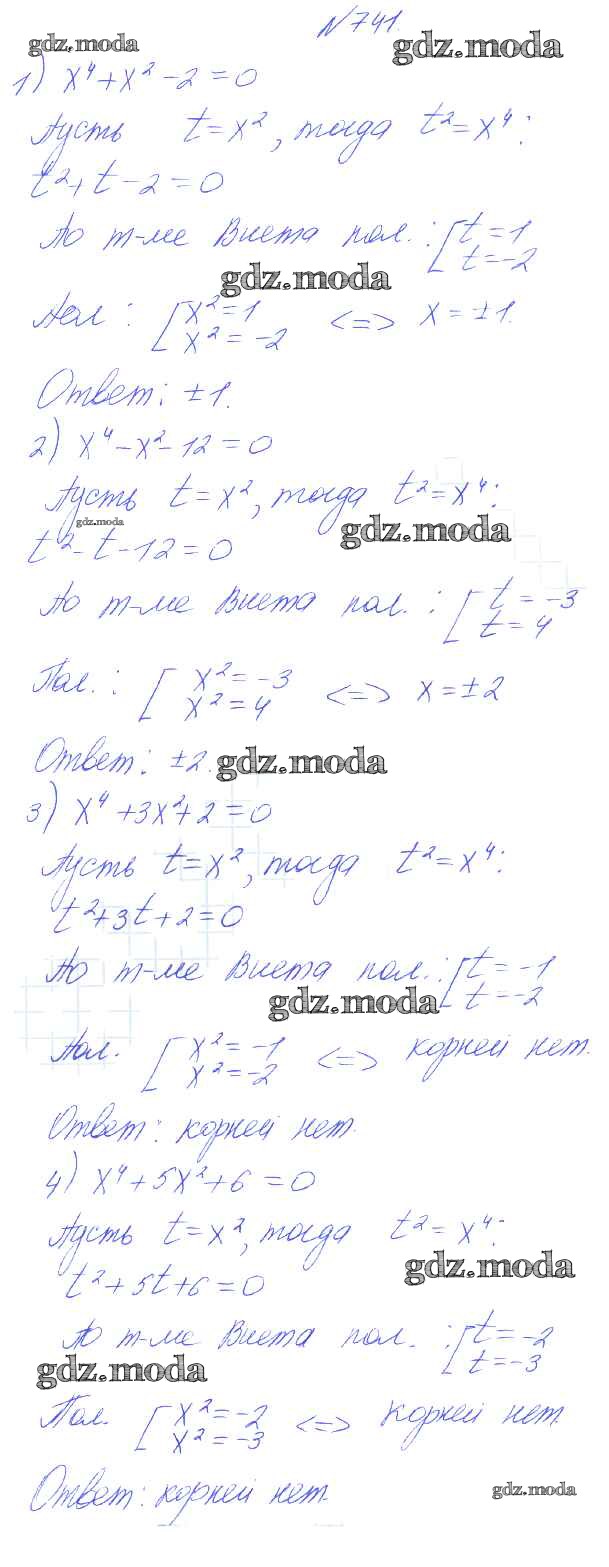 №741.
gdz.moda gdz.moda
1) x⁴+x²-2=0
Пусть t=x², тогда t²=x⁴:
t²+t-2=0
По т-ме Виета пол.: [t=1
t=-2
gdz.moda
Пол: [x²=1 <=> x=±1.
x²=-2
Ответ: ±1.
2) x⁴-x²-12=0
Пусть t=x², тогда t²=x⁴:
gdz.moda gdz.moda
t²-t-12=0
По т-ме Виета пол.: [t=-3
t=4
Пол.: [x²=-3 <=> x=±2
x²=4
Ответ: ±2. gdz.moda
3) x⁴+3x²+2=0
Пусть t=x², тогда t²=x⁴:
t²+3t+2=0
По т-ме Виета пол.: [t=-1
t=-2
gdz.moda
Пол. [x²=-1 <=> корней нет.
x²=-2
Ответ: корней нет.
4) x⁴+5x²+6=0
Пусть t=x², тогда t²=x⁴:
gdz.moda
t²+5t+6=0
По т-ме Виета пол.: [t=-2
t=-3
gdz.moda
Пол. [x²=-2 <=> корней нет
x²=-3
Ответ: корней нет.
gdz.moda